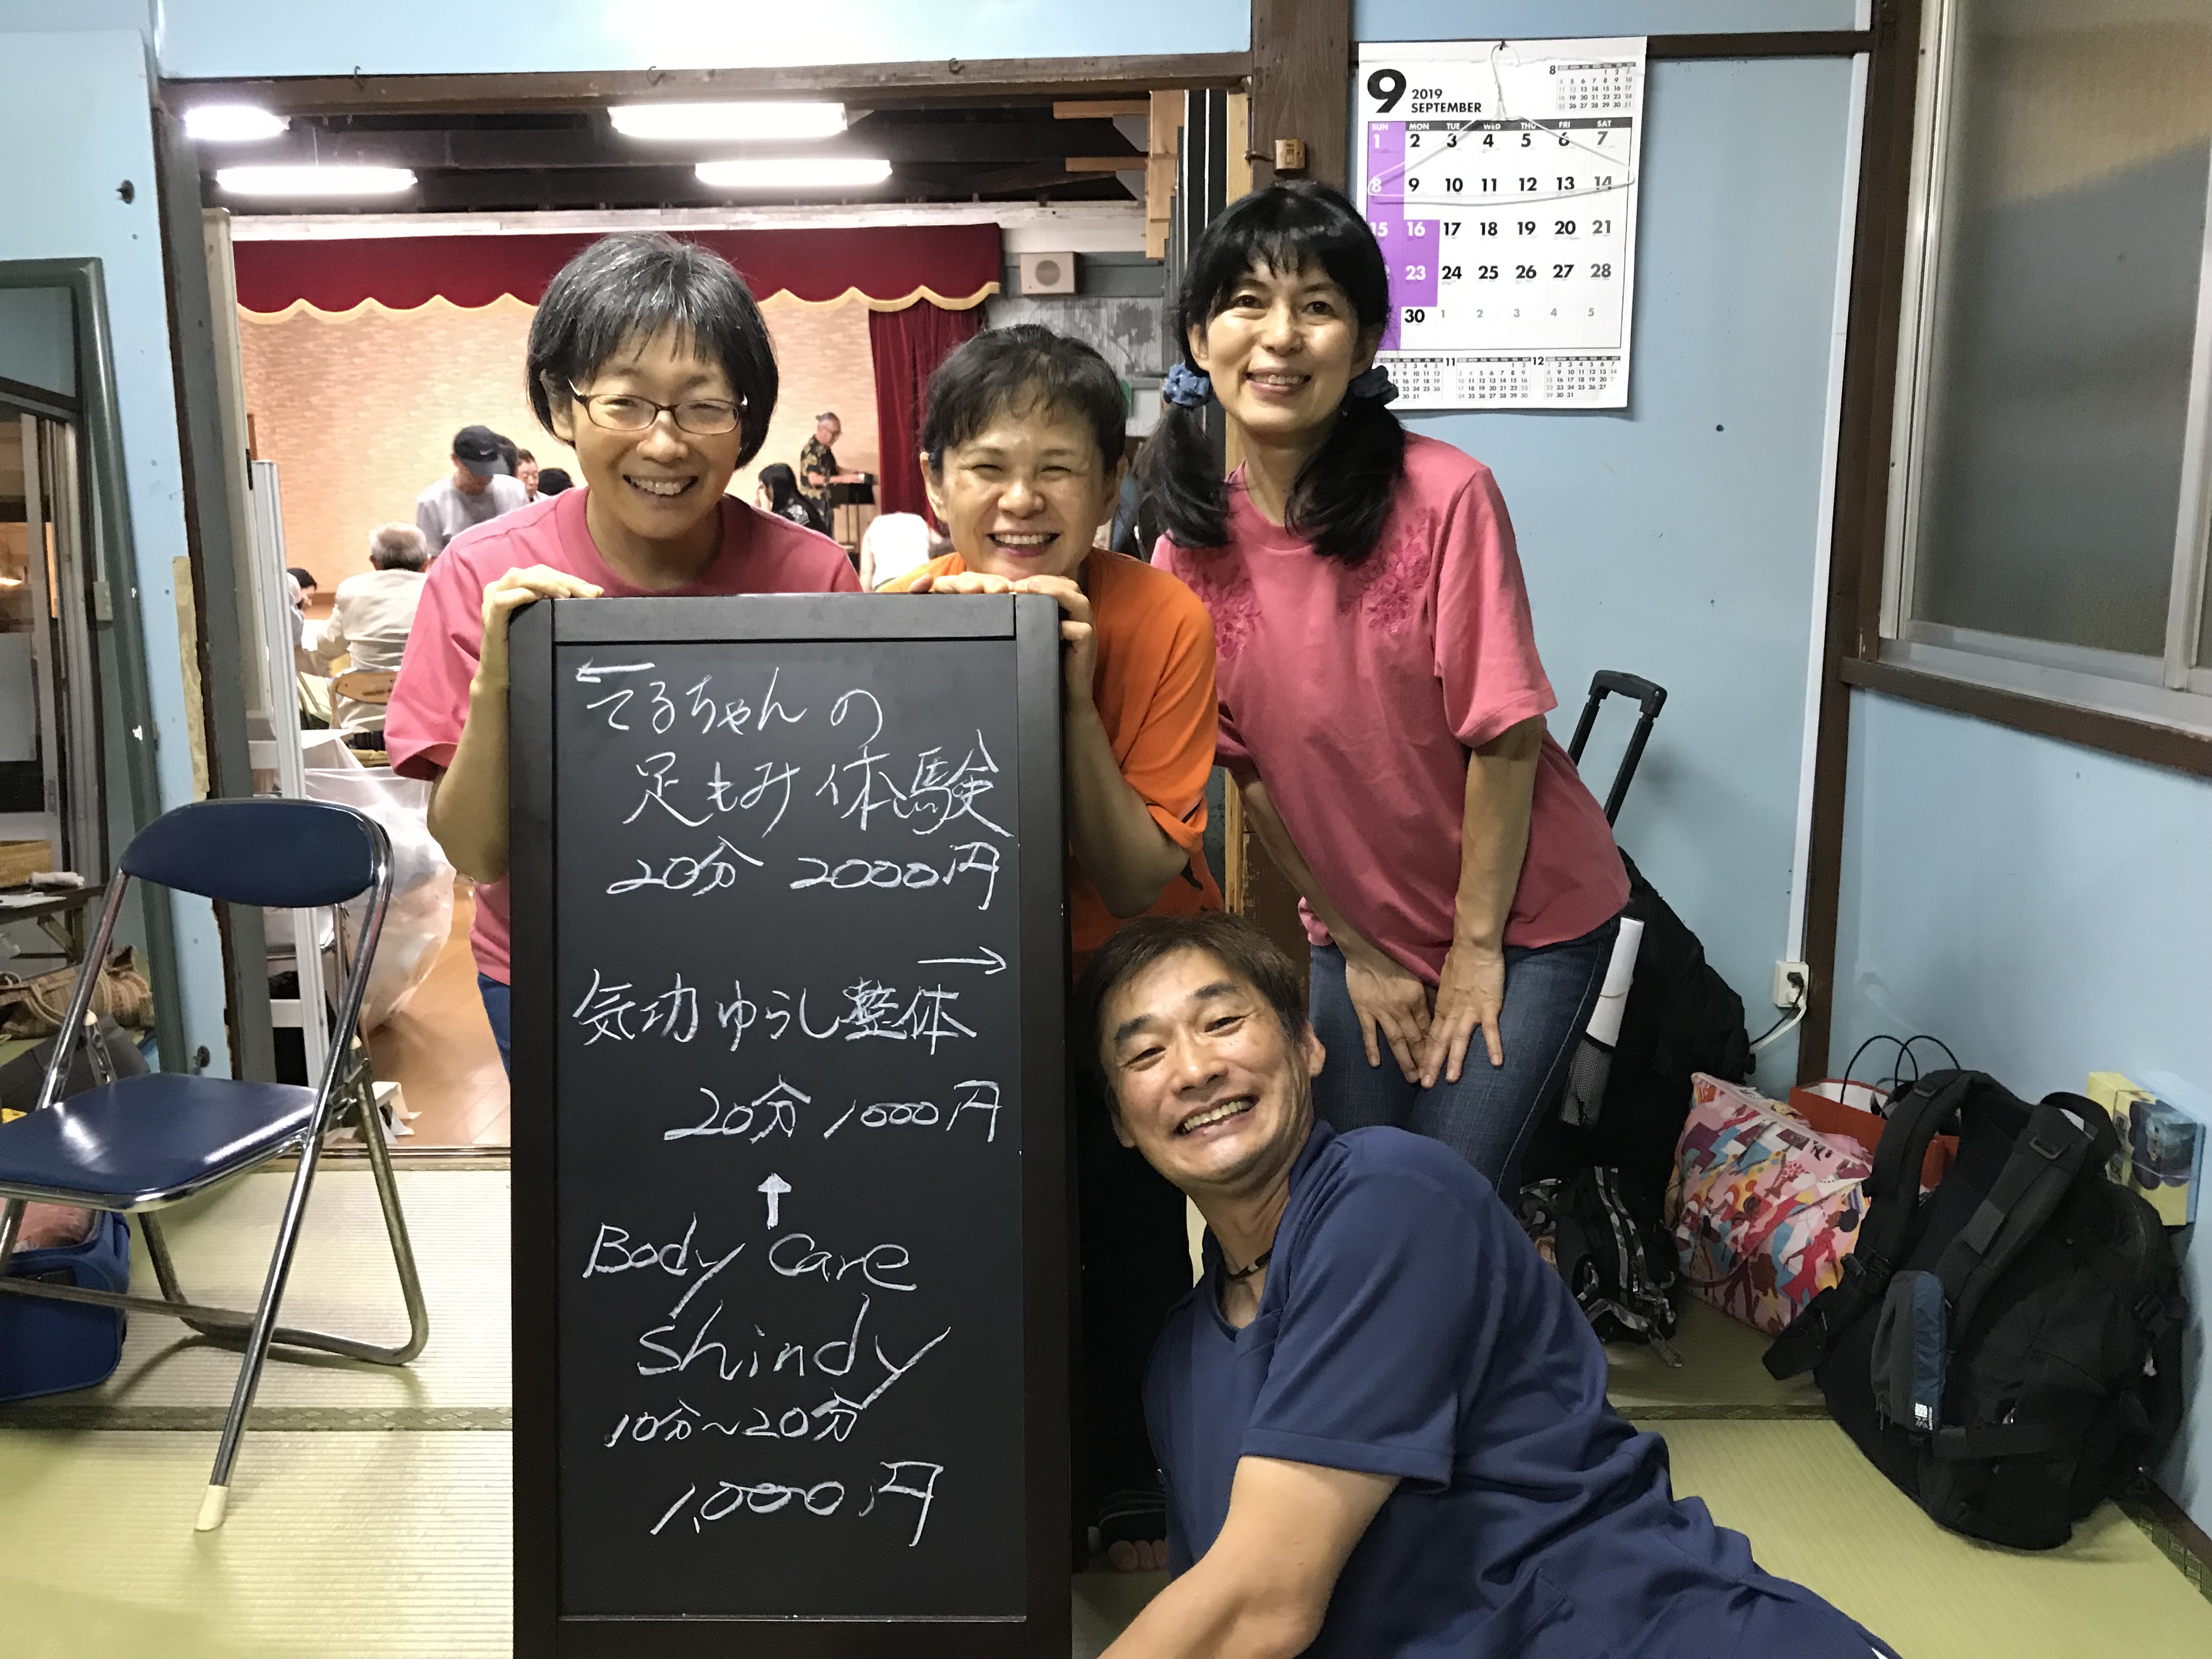 ← てるちゃんの
足もみ体験
20分 2000円
→
気功ゆらし整体
20分 1000円
↑
Body Care
Shindy
10分~20分
1,000円
9 2019
SEPTEMBER
8
SUN MON TUE WED THU FRI SAT
1 2 3 4 5 6 7
8 9 10 11 12 13 14
15 16 17 18 19 20 21
23 24 25 26 27 28
30 1 2 3 4 5
11 12